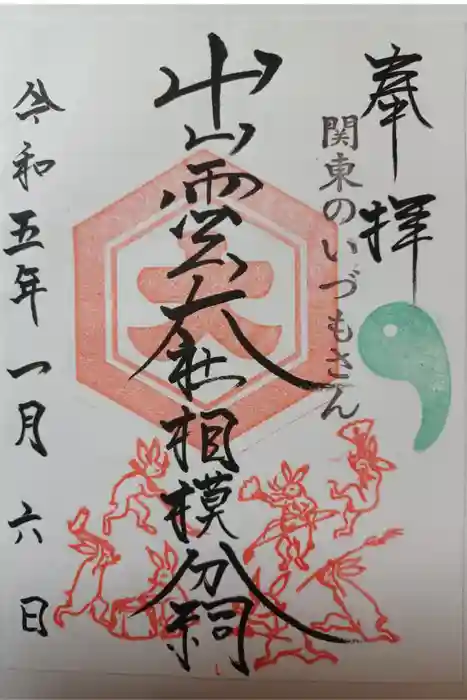 奉拝
関東のいづもさん
出雲大社相模分祠
大
令和五年一月六日